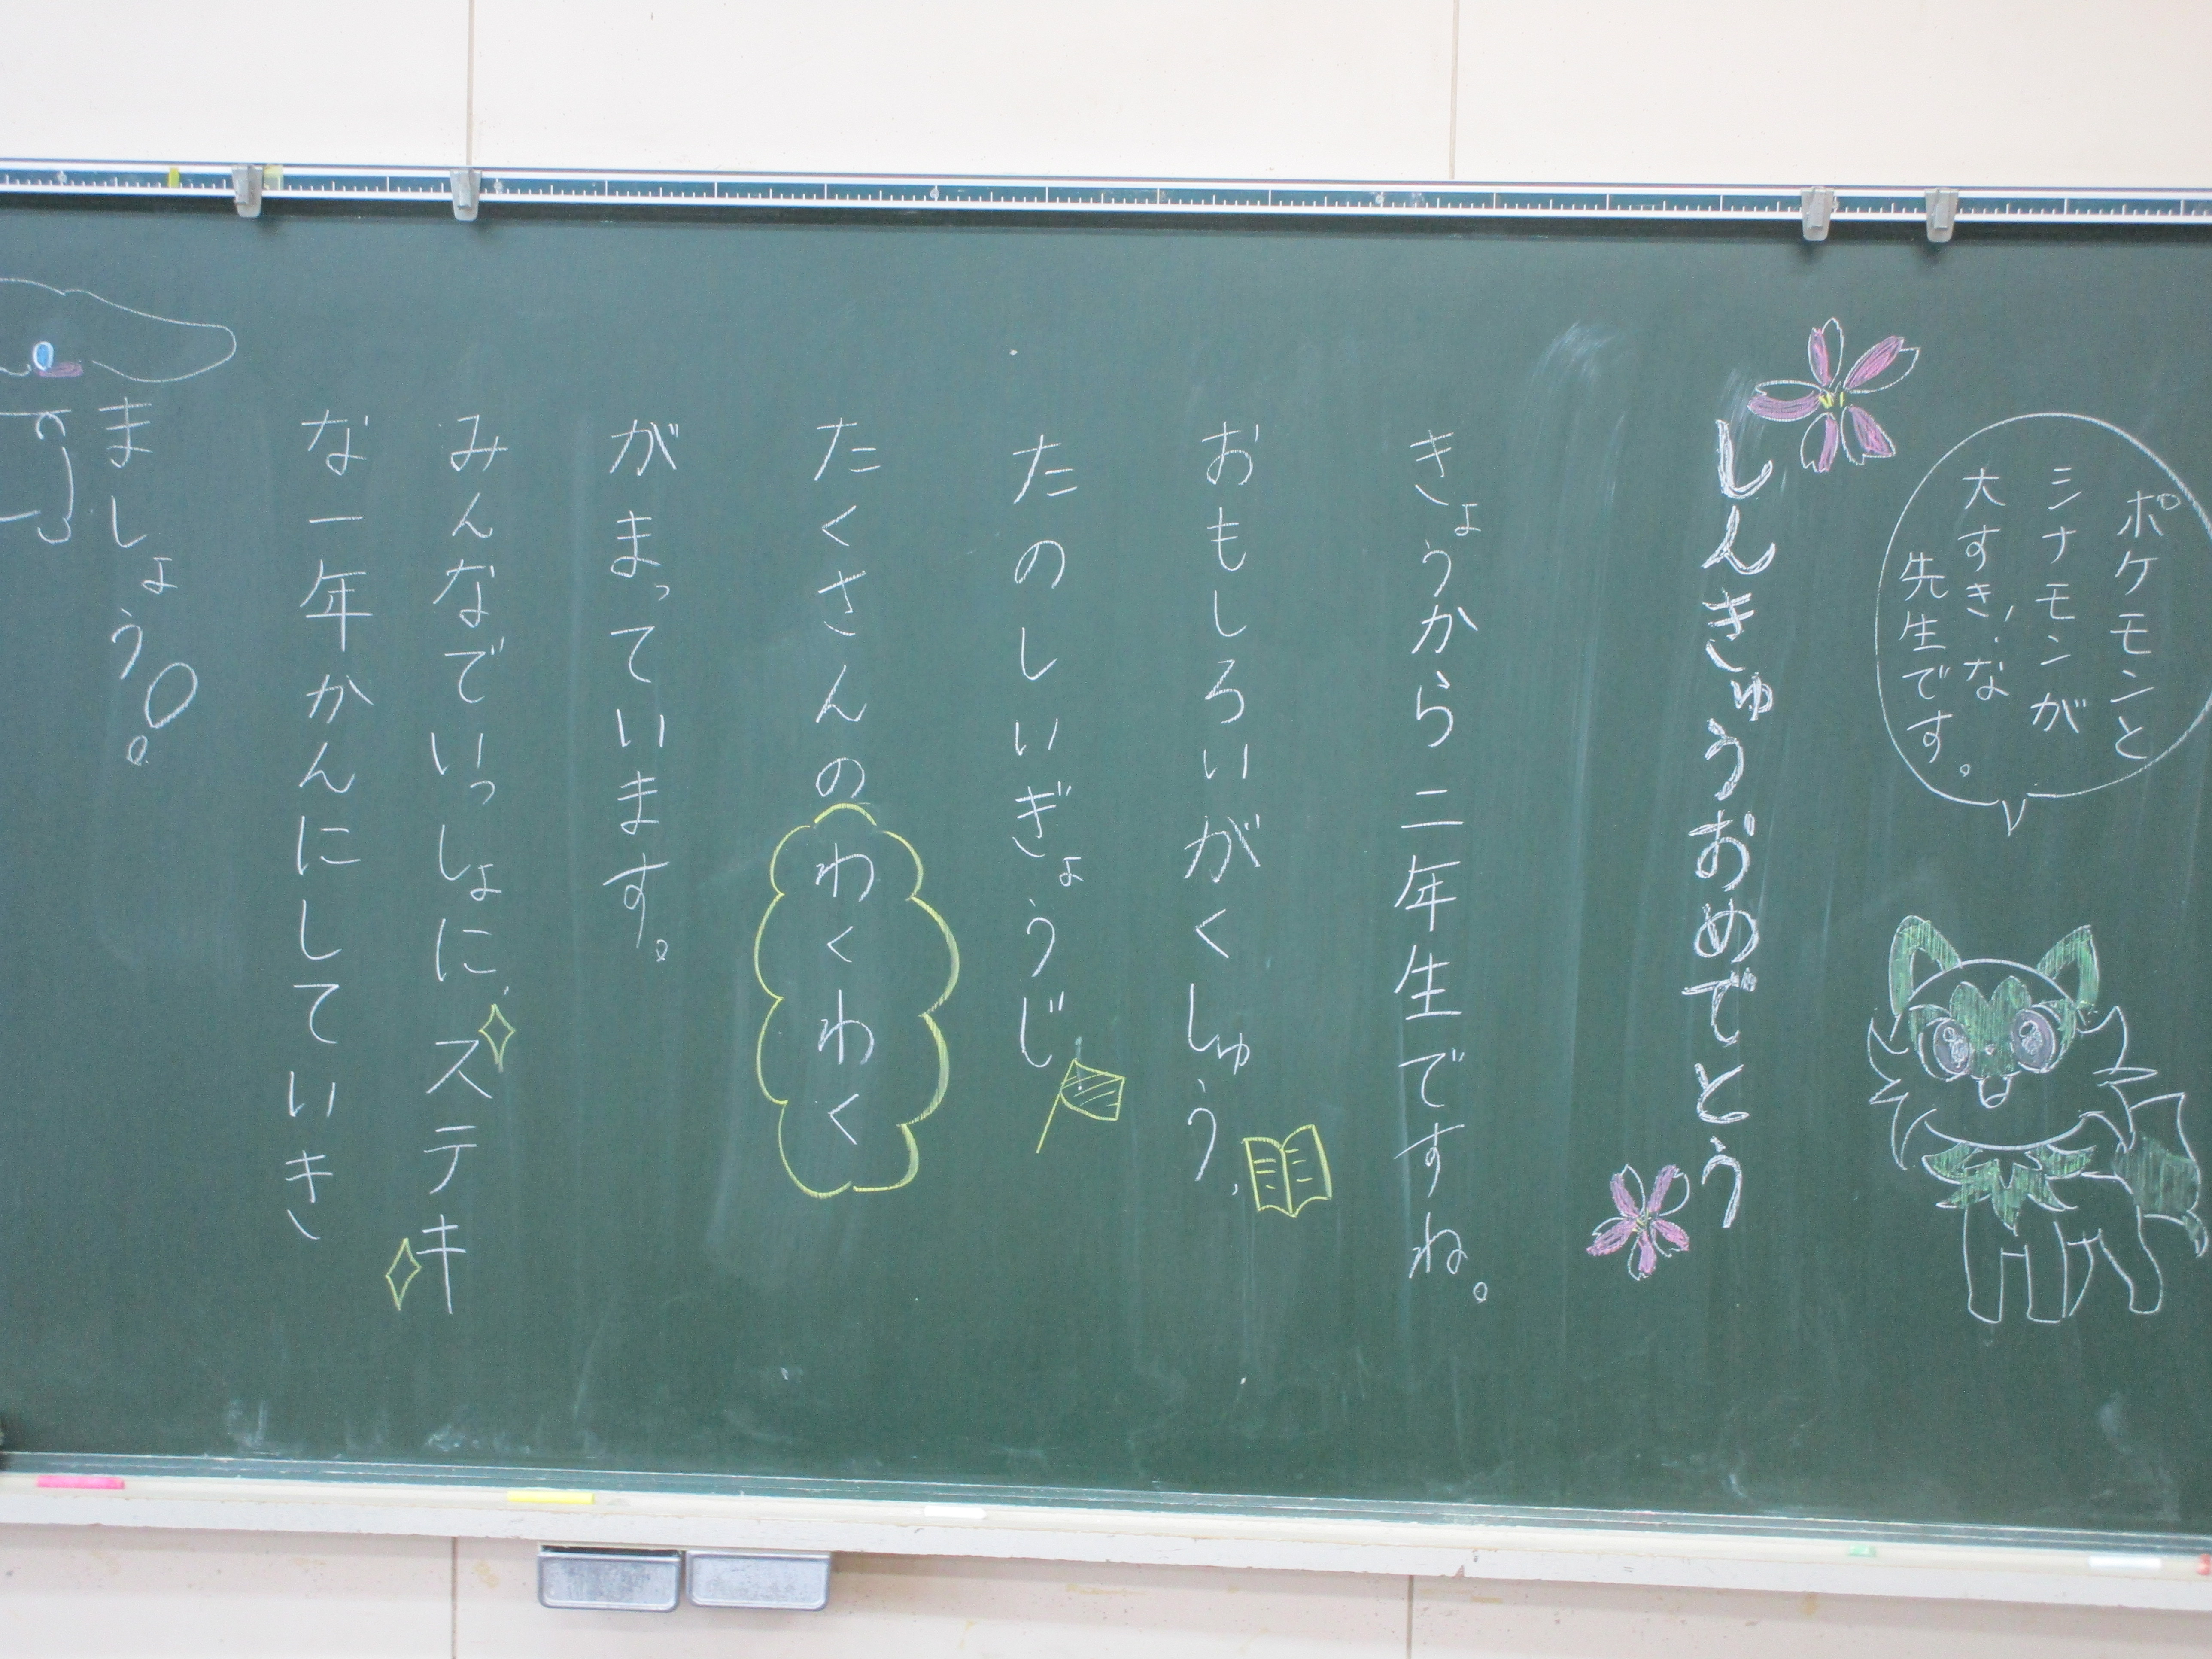 ポケモンと
シナモンが
大すき!な
先生です。
しんきゅうおめでとう
きょうから二年生ですね。
おもしろいがくしゅう、
たのしいぎょうじ
たくさんのわくわく
がまっています。
みんなでいっしょにステキ
な一年かんにしていき
ましょう!